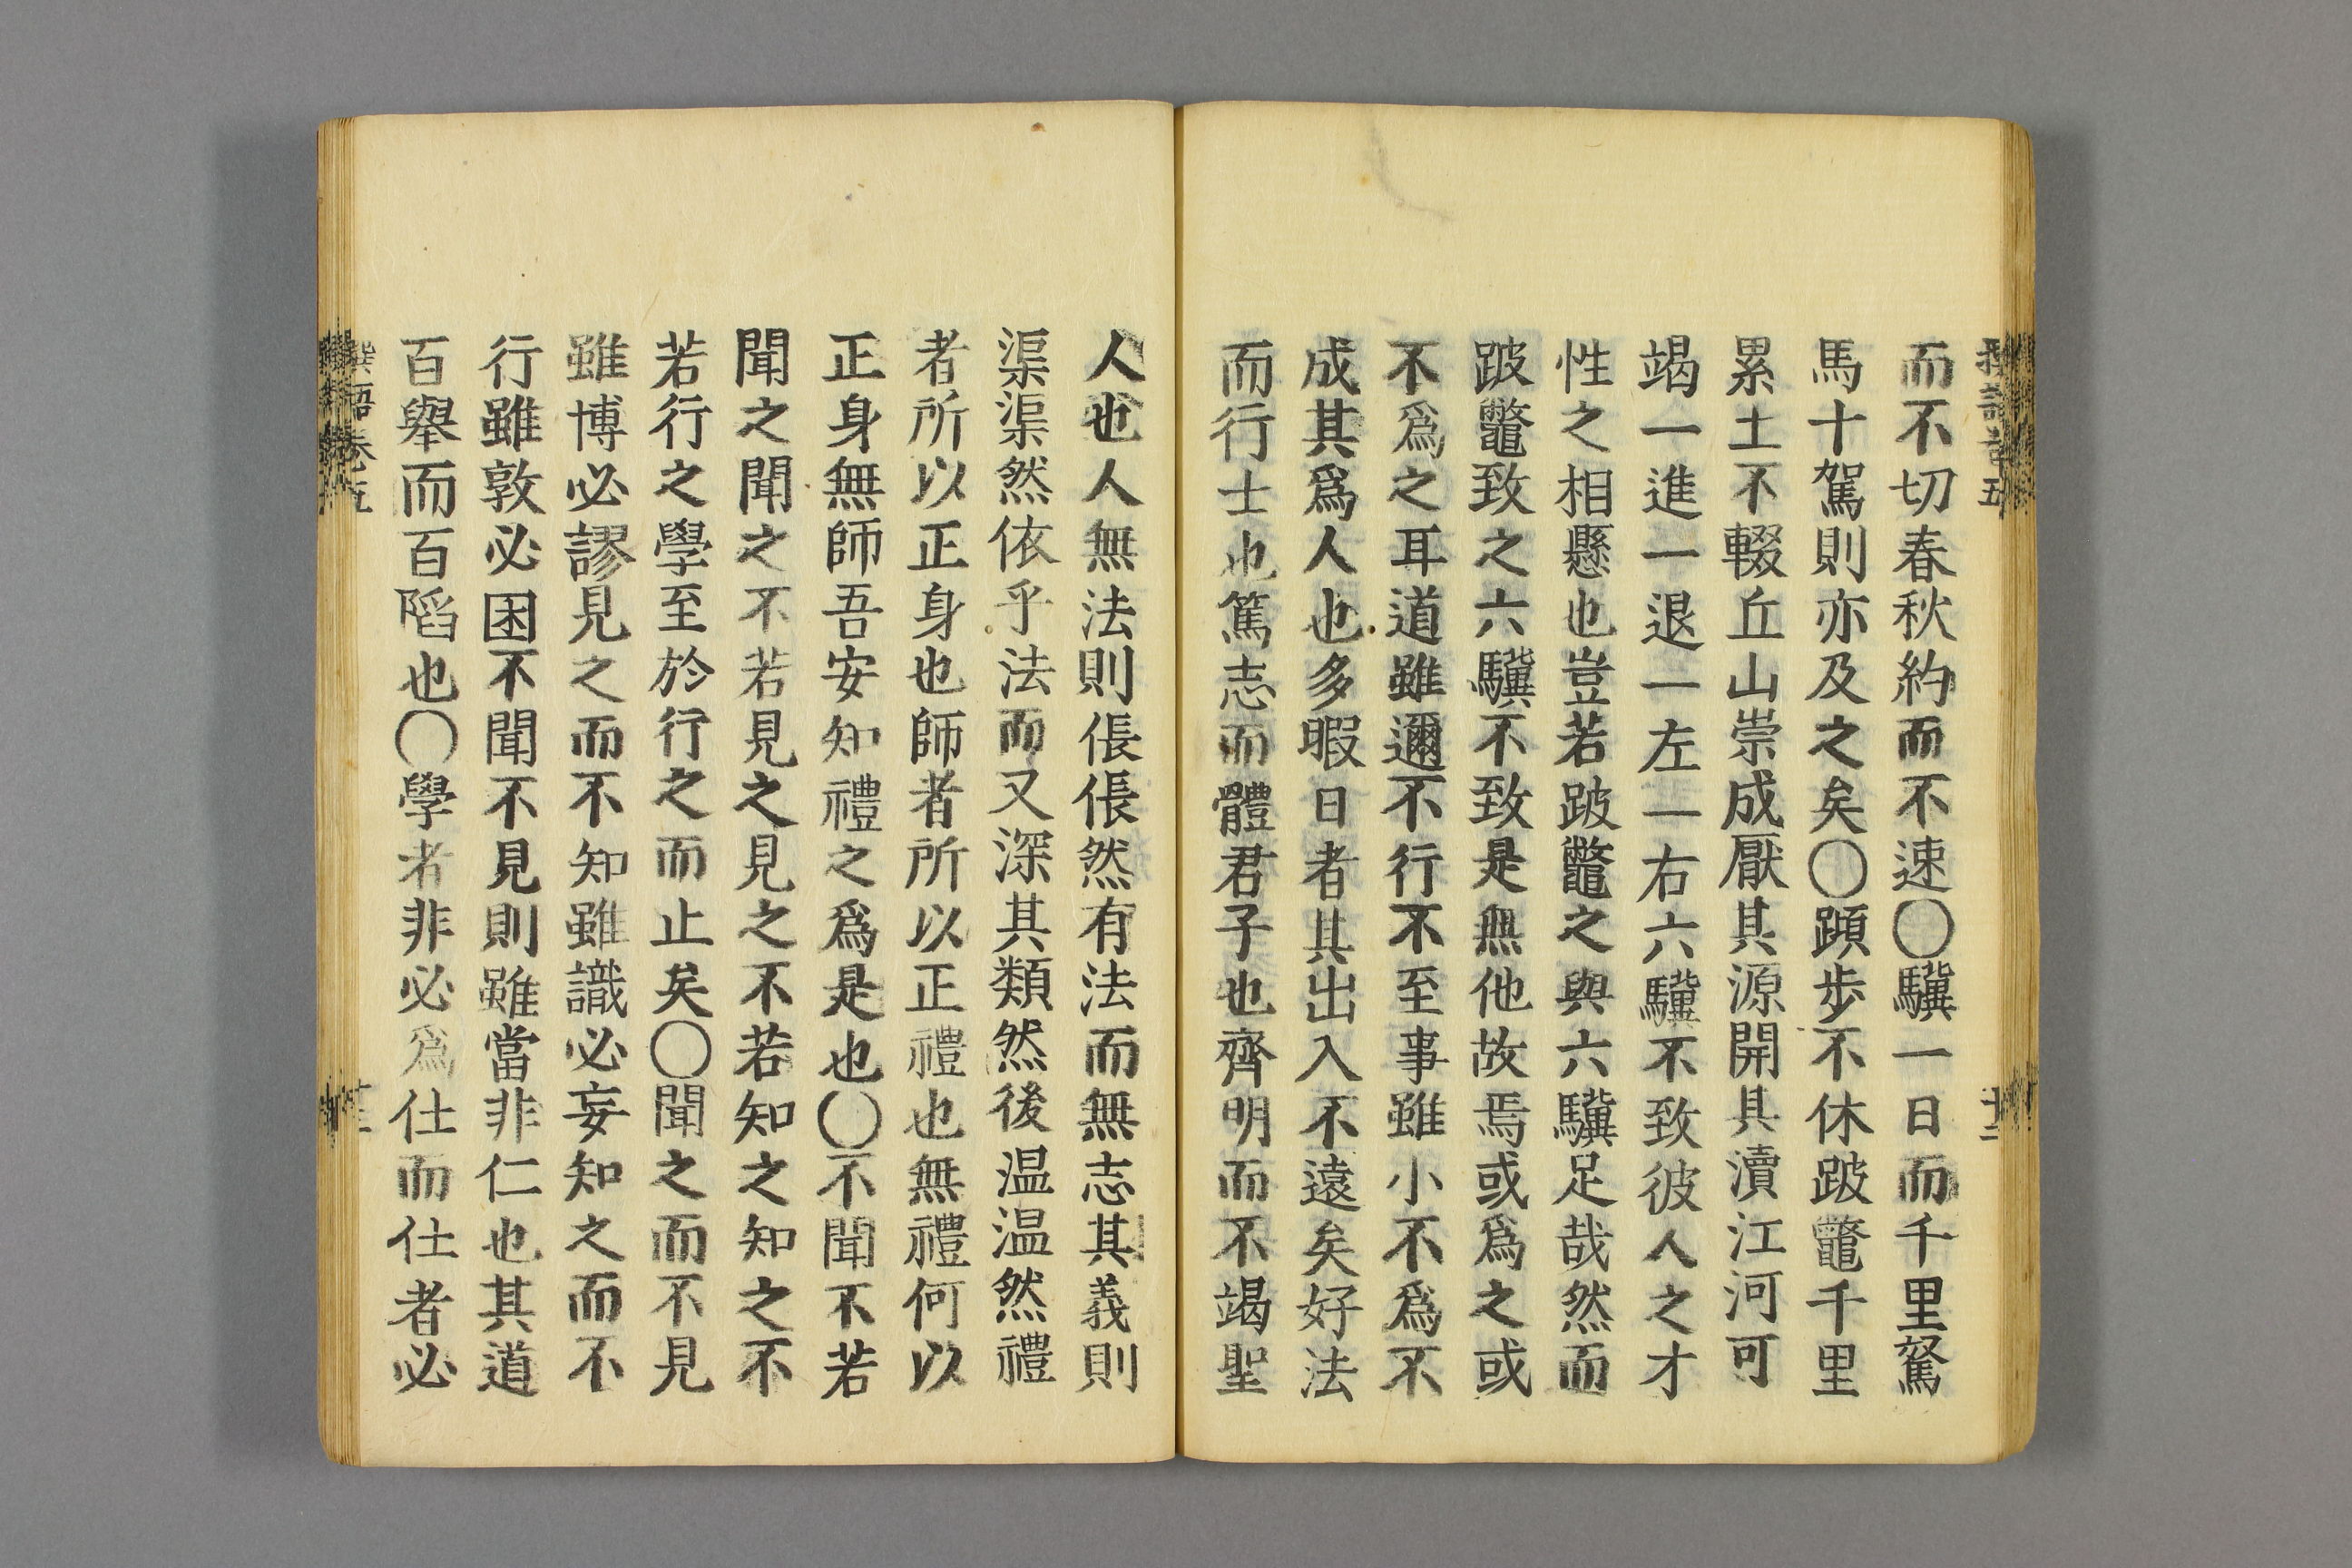 而不切春秋約而不速〇驥一日而千里駑
馬十駕則亦及之矣〇蹞歩不休跛鼈千里
累土不輟丘山崇成厭其源開其瀆江河可
竭一進一退一左一右六驥不致彼人之才
性之相懸也豈若跛鼈之與六驥足哉然而
跛鼈致之六驥不致是無他故焉或爲之或
不爲之耳道雖邇不行不至事雖小不爲不
成其爲人也多暇日者其出入不遠矣好法
而行士也篤志而體君子也齊明而不竭聖
人也人無法則倀倀然有法而無志其義則
渠渠然依乎法而又深其類然後温温然禮
者所以正身也師者所以正禮也無禮何以
正身無師吾安知禮之爲是也〇不聞不若
聞之聞之不若見之見之不若知之知之不
若行之學至於行之而止矣〇聞之而不見
雖博必謬見之而不知雖識必妄知之而不
行雖敦必困不聞不見則雖當非仁也其道
百舉而百陷也〇學者非必爲仕而仕者必
語卷五